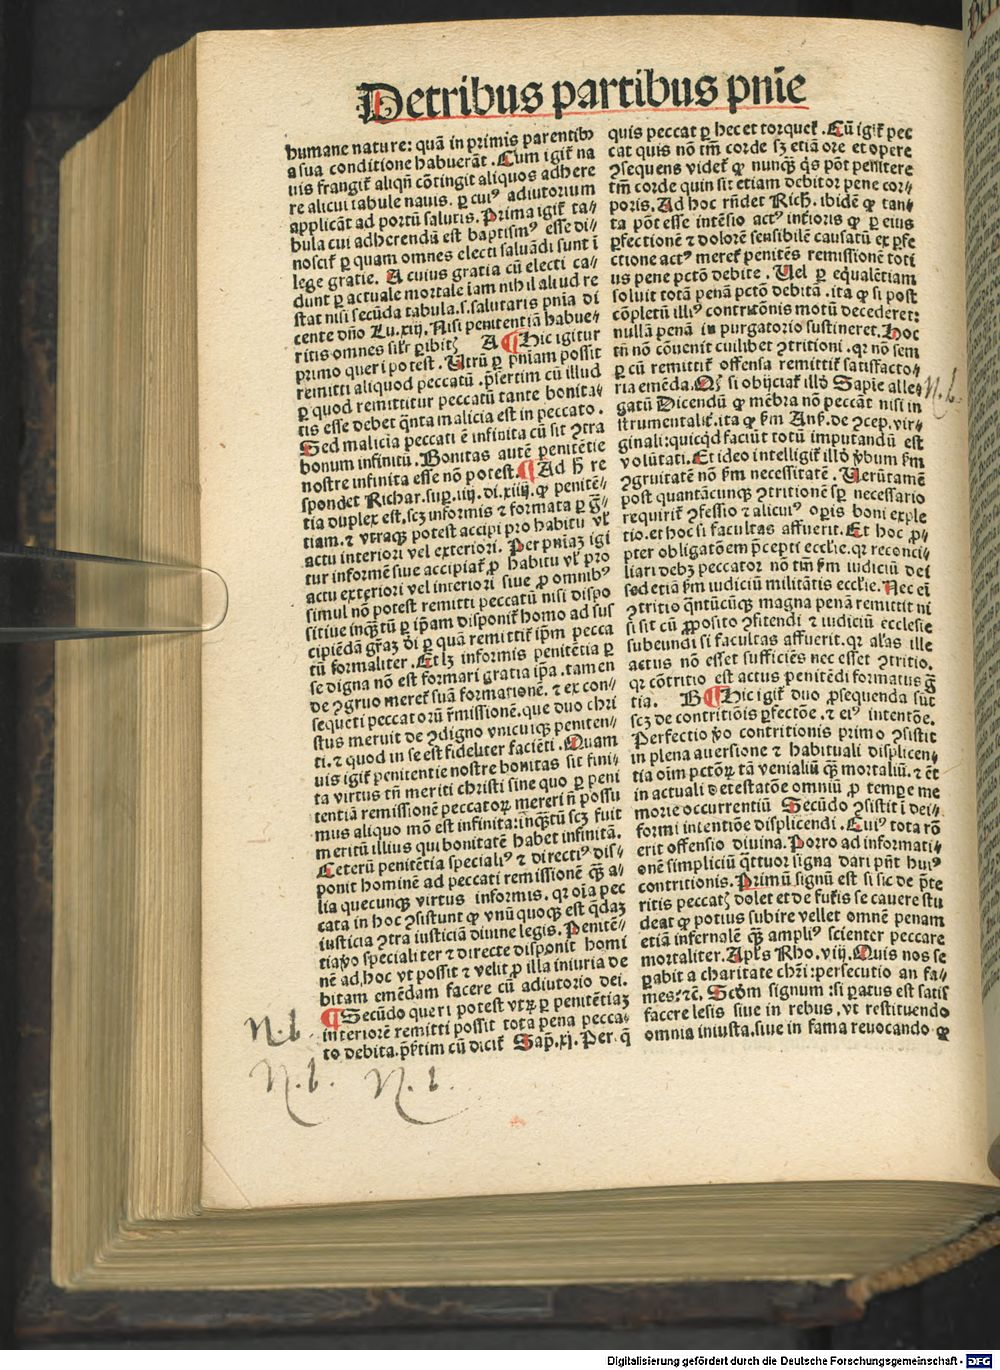 De tribus partibus pnīe
humane nature: quā in primis parentibꝰ
a sua conditione habuerāt. Cum igit̄ na
uis frangit̄ aliqñ cōtingit aliquos adhere
re alicui tabule nauis. ꝑ cuiꝰ adiutorium
applicāt ad portū salutis. Prima igit̄ ta//
bula cui adherendū est baptismꝰ esse di//
noscit̄ ꝑ quam omnes electi saluādi sunt ī
lege gratie. A cuius gratia cū electi ca//
dunt ꝑ actuale mortale iam nihil aliud re
stat nisi secūda tabula. s. salutaris pnīa di
cente dño Lu. xiij. Nisi penitentiā habue//
ritis omnes sil'r ꝑibitꝭ A ¶ Hic igitur
primo queri potest. Utrū ꝑ pniam possit
remitti aliquod peccatū. p̄sertim cū illud
ꝑ quod remittitur peccatū tante bonita//
tis esse debet q̄nta malicia est in peccato.
Sed malicia peccati ē infinita cū sit ꝯtra
bonum infinitū. Bonitas autē penitētie
nostre infinita esse nō potest. ¶ Ad h̄ re
spondet Richar. sup. iiij. di. xiiij. ꝙ penitē//
tia duplex est. scꝫ informis ⁊ formata ꝑ g̃//
tiam. ⁊ vtraqꝫ potest accipi pro habitu vl'
actu interiori vel exteriori. Per pniaꝫ igi
tur informē siue accipiat̄ ꝓ habitu vl' pro
actu exteriori vel interiori siue ꝓ omnibꝰ
simul nō potest remitti peccatū nisi dispo
sitiue inqꝫtū ꝑ ip̄am disponit̄ homo ad sus
cipiēdā gr̄aꝫ dei ꝑ quā remittit̄ ip̄m pecca
tū formaliter. Et lꝫ informis penitētia ꝑ
se digna nō est formari gratia ip̄a. tamen
de ꝯgruo meret̄ suā formationē. ⁊ ex con//
sequeti peccatorū r̄missionē. que duo chri
stus meruit de ꝯdigno vnicuiqꝫ peniten//
ti. ⁊ quod in se est fideliter faciēti. Quam
uis igit̄ penitentie nostre bonitas sit fini//
ta virtus tñ meriti christi sine quo ꝑ peni
tentiā remissionē peccatoꝝ mereri ñ possu
mus aliquo mō est infinita: inqꝫtū scꝫ fuit
meritū illius qui bonitatē habet infinitā.
Ceterū penitētia specialiꝰ ⁊ directiꝰ dis//
ponit hominē ad peccati remissionē qꝫ a//
lia quecunqꝫ virtus informis. qr oīa pec
cata in hoc ꝯsistunt ꝙ vnū quoqꝫ est q̄daꝫ
iusticia ꝯtra iusticiā diuine legis. Penitē//
tia ꝟo specialiter ⁊ directe disponit homi
nē ad hoc vt possit ⁊ velit ꝓ illa iniuria de
bitam emēdam facere cū adiutorio dei.
¶ Secūdo queri potest vtꝝ ꝑ penitētiaꝫ
interiorē remitti possit tota pena pecca//
to debita. p̄rtim cū dicit̄ Sap̄. xj. Per q̄
quis peccat ꝑ hec et torquet̄. Cū igit̄ pec
cat quis nō tm̄ corde sꝫ etiā ore et opere
ꝯsequens videt̄ ꝙ nunqꝫ q̄s pōt penitere
tm̄ corde quin sit etiam debitor pene cor//
poris. Ad hoc rñdet Rich. ibidē ꝙ tan//
ta pōt esse intēsio actꝰ inťioris ꝙ ꝑ eius
ꝑfectionē ⁊ dolorē sensibilē causatū ex ꝑfe
ctione actꝰ meret̄ penitēs remissionē toti
us pene pctō debite. Uel ꝑ equalētiam
soluit totā penā pctō debitā. ita ꝙ si post
cōpletū illiꝰ contricōnis motū decederet:
nullā penā in purgatorio sustineret. Hoc
tñ nō cōuenit cuilibet ꝯtritioni. qr nō sem
ꝑ cū remittit̄ offensa remittit̄ satisfacto//
ria emēda. Qꝫ si obijciat̄ illď Sapie alle//
gatū Dicendū ꝙ mēbra nō peccāt nisi in
strumentalit̄. ita ꝙ ẜm Ans̄. de ꝯcep. vir//
ginali: quicq̇d faciūt totū imputandū est
volūtati. Et ideo intelligit̄ illď ꝟbum ẜm
ꝯgruitatē nō ẜm necessitatē. Uerūtamē
post quantācunqꝫ ꝯtritionē sp̄ necessario
requirit̄ ꝯfessio ⁊ alicuiꝰ op̄is boni exple
tio. et hoc si facultas affuerit. Et hoc ꝓ//
pter obligatōem p̄cepti eccl'ie. qr reconci//
liari debꝫ peccator nō tm̄ ẜm iudiciū dei
sed etiā ẜm iudiciū militātis eccl'ie. Nec eī
ꝯtritio q̄ntūcūqꝫ magna penā remittit ni
si sit cū ꝓposito ꝯfitendi ⁊ iudiciū ecclesie
subeundi si facultas affuerit. qr al'as ille
actus nō esset sufficiēs nec esset ꝯtritio.
qr cōtritio est actus penitēdi formatus g̃
tia. B ¶ Hic igit̄ duo ꝓsequenda sūt
scꝫ de contritiōis ꝑfectōe. ⁊ eiꝰ intentōe.
Perfectio ꝟo contritionis primo ꝯsistit
in plena auersione ⁊ habituali displicen//
tia oīm pctōꝝ tā venialiū qꝫ mortaliū. ⁊ ēt
in actuali detestatōe omniū ꝓ tempe me
morie occurrentiū Secūdo ꝯsistit ī dei//
formi intentiōe displicendi. Cuiꝰ tota rō
erit offensio diuina. Porro ad informati//
onē simpliciū q̄ttuor signa dari pñt huiꝰ
contritionis. Primū signū est si sic de p̄te
ritis peccatꝭ dolet et de fut̄is se cauere stu
deat ꝙ potius subire vellet omnē penam
etiā infernalē qꝫ ampliꝰ scienter peccare
mortaliter. Apl's Rho. viij. Quis nos se
ꝑabit a charitate chr̄i: persecutio an fa//
mes: ⁊c̄. Scōm signum: si ꝑatus est satis
facere lesis siue in rebus, vt restituendo
omnia iniusta. siue in fama reuocando ꝙ
N. b.
N. b.
N. b.
N. b.
Digitalisierung gefördert durch die Deutsche Forschungsgemeinschaft - DFG